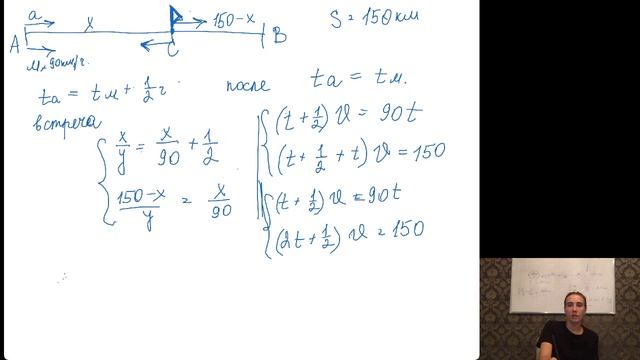 a
x
150-x
S = 150км
A
C
B
м, 90км/г.
ta = tм + 1/2 г.
после ta = tм.
встреча
x/y = x/90 + 1/2
(150-x)/y = x/90
(t + 1/2) ϑ = 90t
(t + 1/2 + t) ϑ = 150
(t + 1/2) ϑ = 90t
(2t + 1/2) ϑ = 150